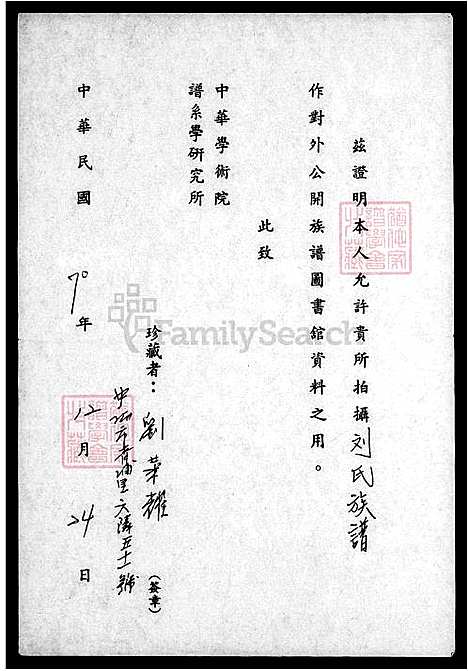 茲證明本人允許貴所拍攝刘氏族譜
作對外公開族譜圖書舘資料之用。
此致
中華學術院
譜系學研究所
珍藏者：劉榮耀(簽章)
五十一號
中華民國70年12月24日
FamilySearch